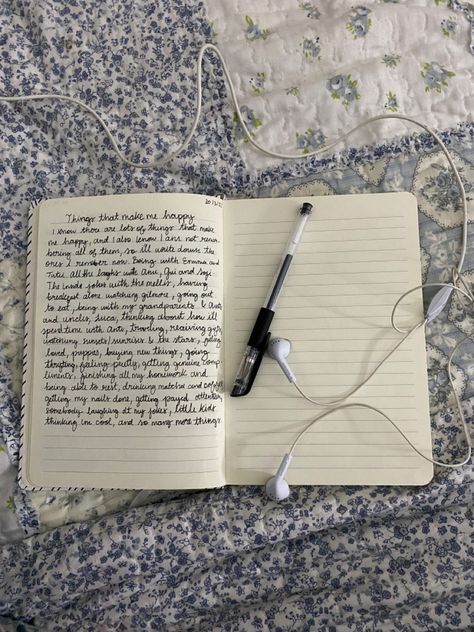 Things that make me happy
I know there are lots of things that make
me happy, and I also know I am not remem
bering all of them, so ill write down the
ones I remember now. Being with Emma and
Tutu, all the laughs with Anu, Gui and
The inside jokes with the , having
breakfast alone watching gilmore, going out
to eat, being with my grandparents & aunt
and uncle, Luca, thinking about how ill
spend time with , traveling, receiving gifts,
watching sunsets/sunrises & the stars, feeling
loved, puppies, buying new things, going
thrifting, feeling pretty, getting genuine comp
liments, finishing all my homework and
being able to rest, drinking matcha and coffee,
getting my nails done, getting payed attention,
somebody laughing at my jokes, little kids
thinking im cool, and so many more things.